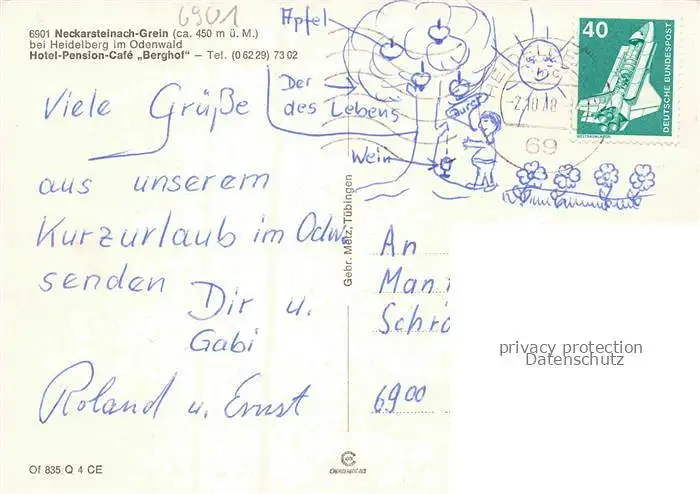 6901
6901 Neckarsteinach-Grein (ca. 450 m ü. M.)
bei Heidelberg im Odenwald
Hotel-Pension-Café „Berghof“ – Tel. (0 62 29) 73 02
Äpfel
Der
des Lebens
Wein
Viele Grüße
aus unserem
Kurzurlaub im Odw.
senden
Dir u.
Gabi
Roland u. Ernst
Gebr. Metz, Tübingen
40
DEUTSCHE BUNDESPOST
69
An
Man
Schrö
6900
privacy protection
Datenschutz
Of 835 Q 4 CE